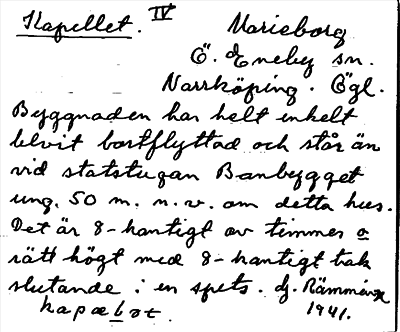 Kapellet. IV Marieborg
Ö. Eneby sn.
Norrköping. Ögl.
Byggnaden har helt enkelt
blvit bortflyttad och står än
vid statstugan Banbygget
ung. 50 m. n.v. om detta hus.
Det är 8-kantigt av timmer o
rätt högt med 8-kantigt tak
slutande i en spets. dj.
kapæbət. 1941.